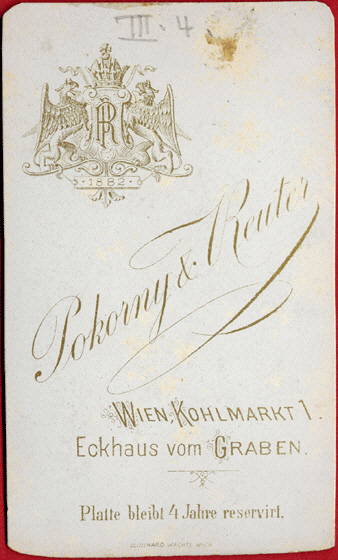 III. 4
PR
1882
Pokorny & Reuter
WIEN, KOHLMARKT 1.
Eckhaus vom GRABEN.
Platte bleibt 4 Jahre reservirt.
BERNHARD WACHTL WIEN